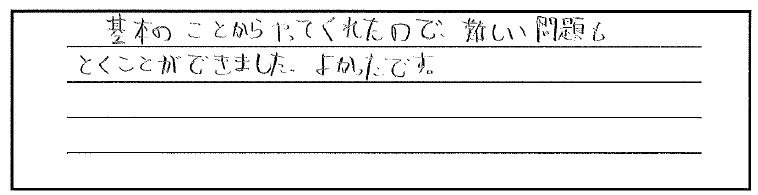 基本のことからやってくれたので、難しい問題も
とくことができました。よかったです。